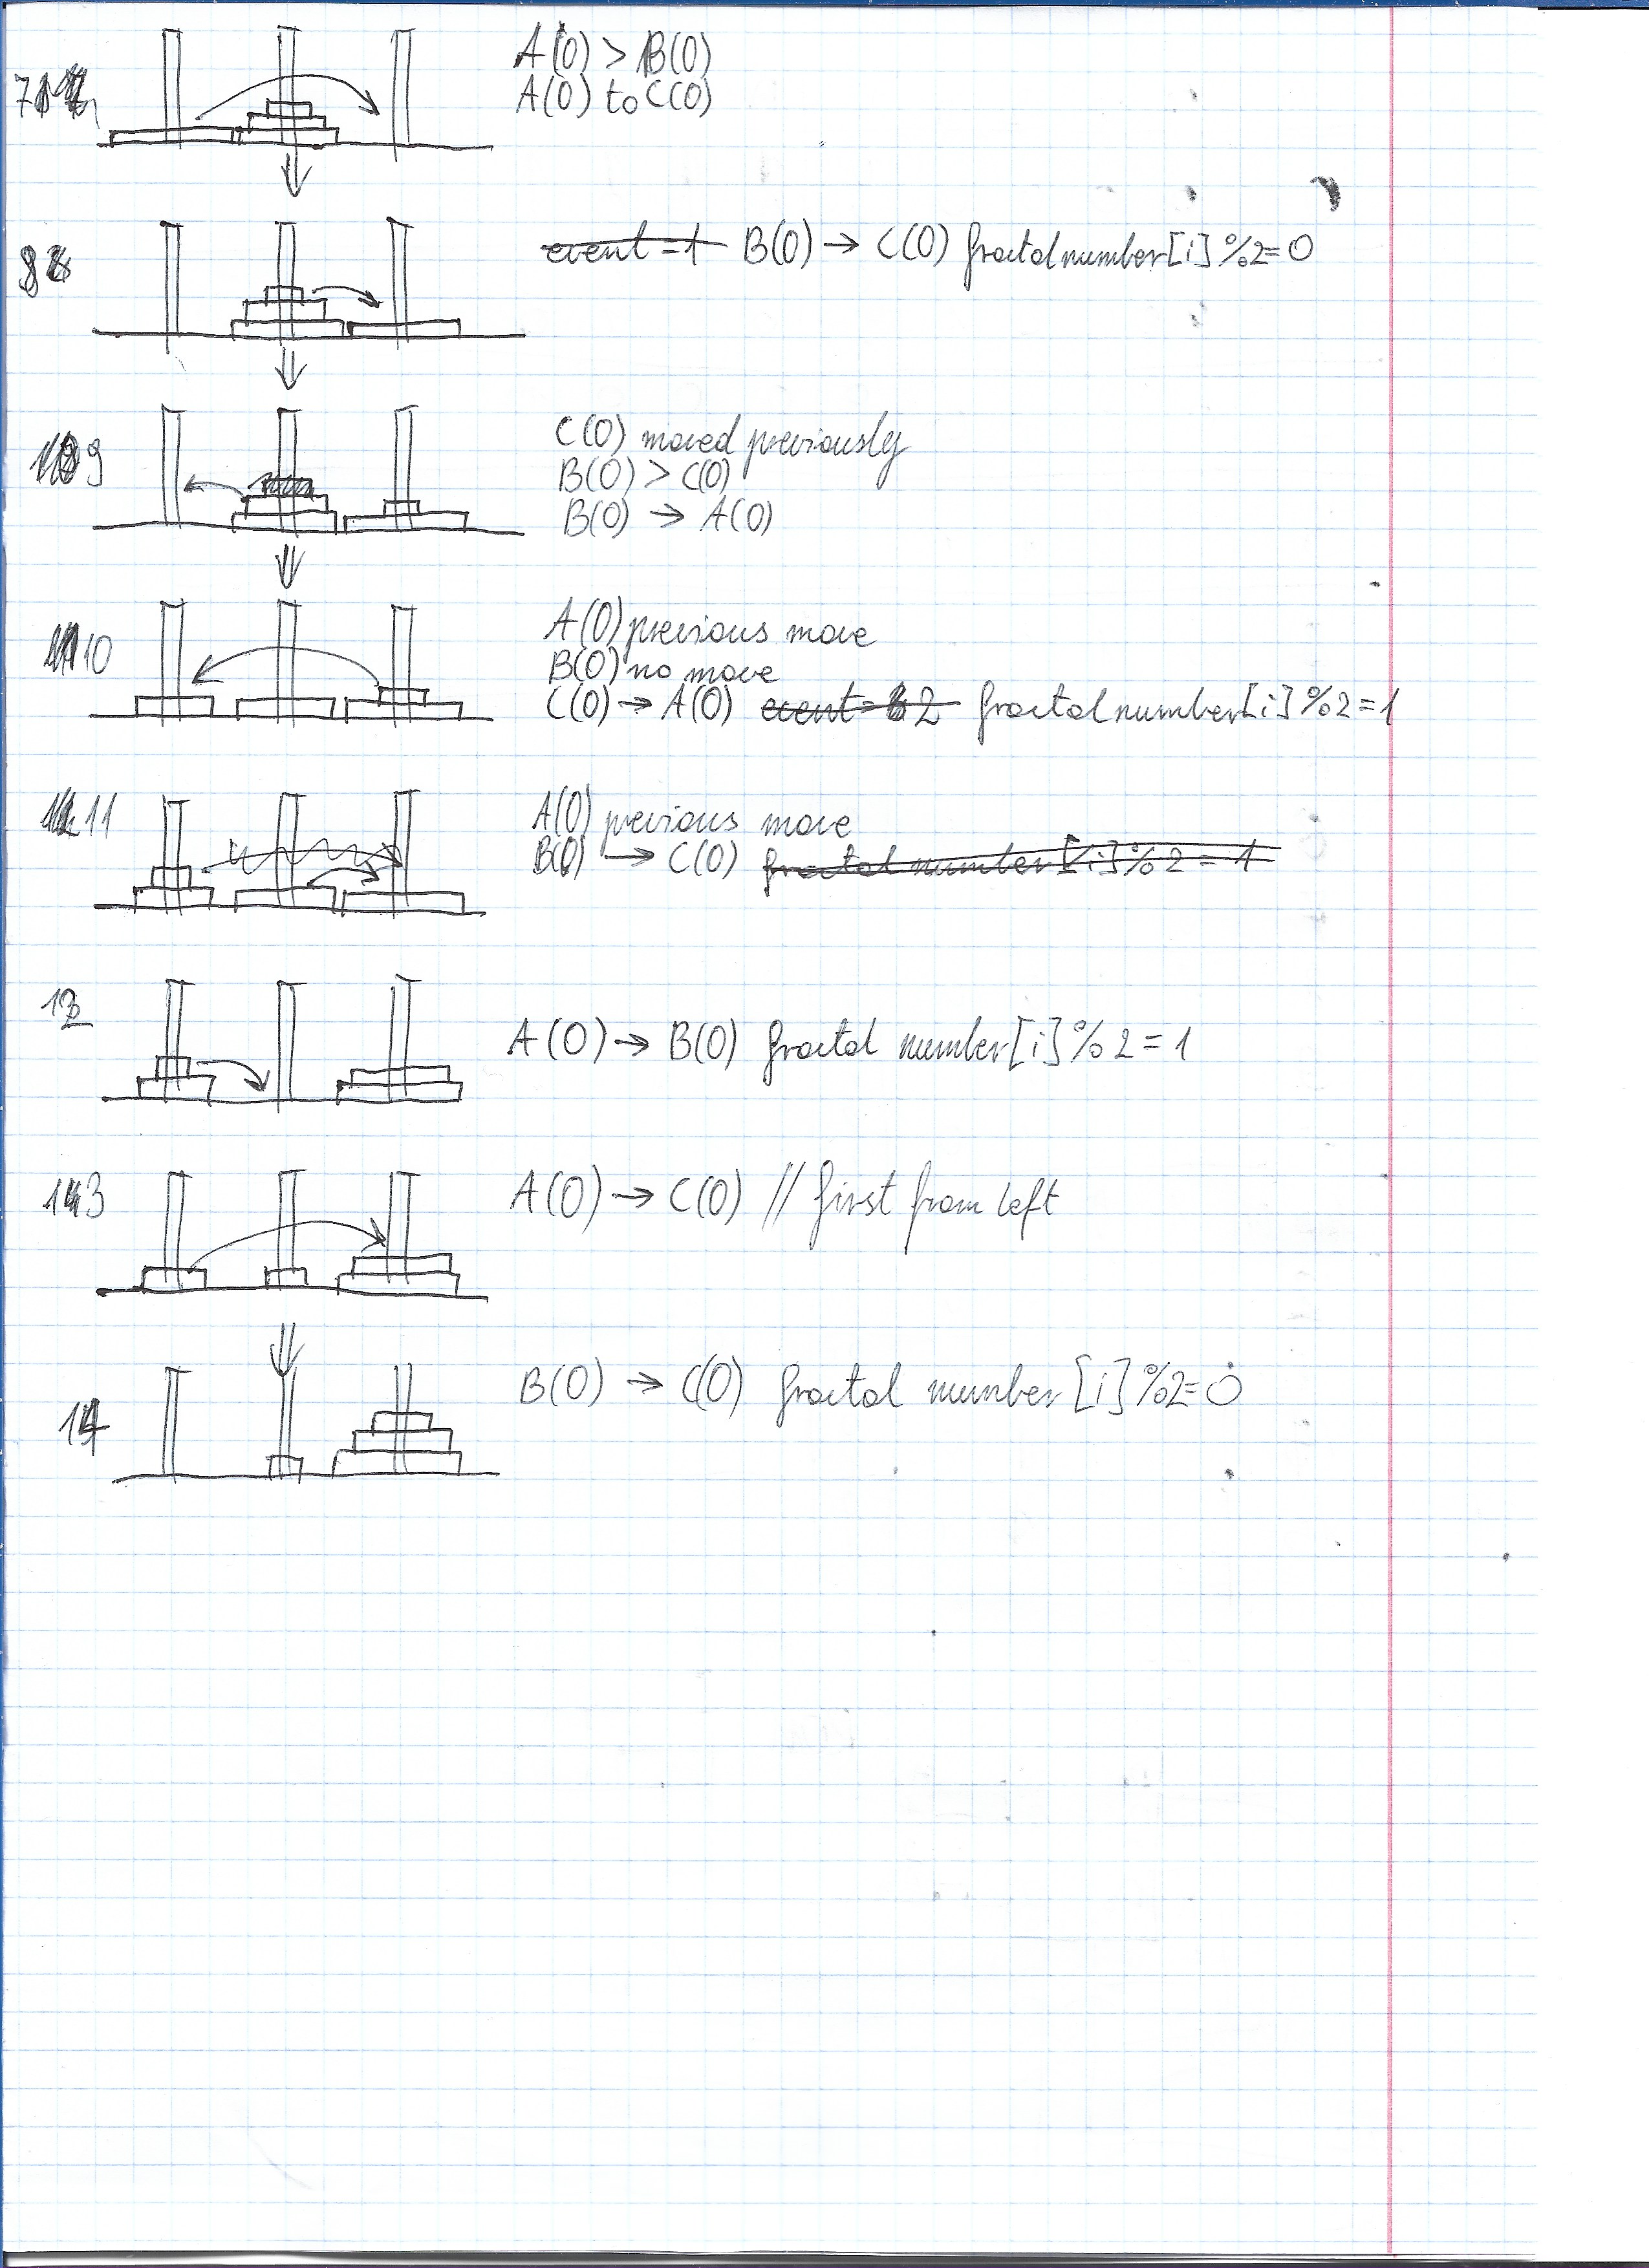 7
A(0) > B(0)
A(0) to C(0)
8
event = 1 B(0) → C(0) fractal number[i] %2=0
9
C(0) moved previously
B(0) > C(0)
B(0) → A(0)
10
A(0) previous move
B(0) no move
C(0) → A(0) event = 2 fractal number[i] %2=1
11
A(0) previous move
B(0) → C(0) fractal number[i] %2 = 1
12
A(0) → B(0) fractal number[i] %2 = 1
13
A(0) → C(0) // first from left
14
B(0) → C(0) fractal number [i] %2=0